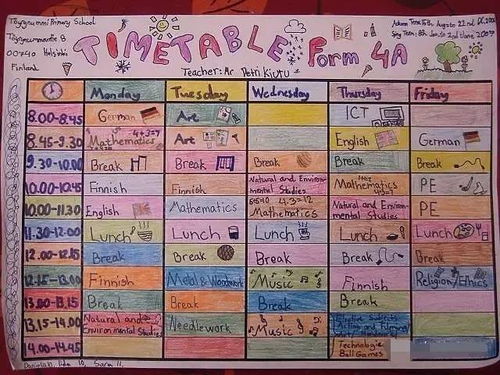 Primary School
00740 Helsinki
Finland
TIMETABLE for Form 4A
Teacher: Mr Petri Kiutu
Monday Tuesday Wednesday Thursday Friday
8.00-8.45 German Art ICT
8.45-9.30 Mathematics 4+3=7 Art English German
9.30-10.00 Break Break Break Break Break
10.00-10.45 Finnish Finnish Natural and Environmental Studies Mathematics PE
10.00-11.30 English Mathematics Mathematics Natural and Environmental Studies PE
11.30-12.00 Lunch Lunch Lunch Lunch Lunch
12.00-12.15 Break Break Break Break Break
12.15-13.00 Finnish Metal & Woodwork Music Finnish Religion/Ethics
13.00-13.15 Break Break Break Break
13.15-14.00 Natural and Environmental Studies Needlework Music
14.00-14.45 Technologie
Ball Games